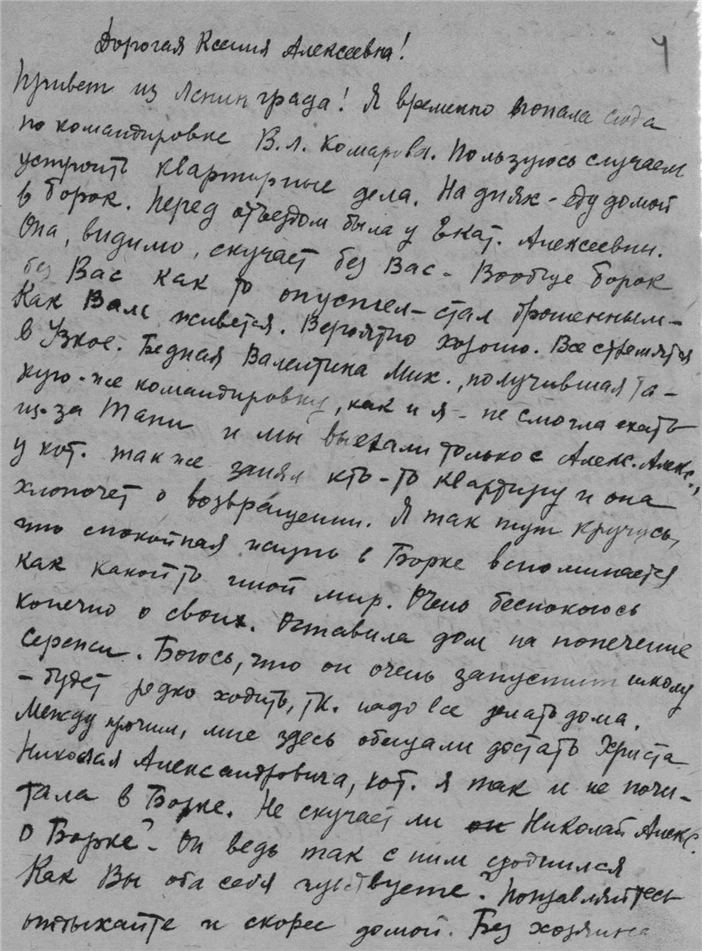 4
Дорогая Ксения Алексеевна!
Привет из Ленинграда! Я временно попала сюда
по командировке В.Л. Комарова. Пользуюсь случаем
устроить квартирные дела. На днях - еду домой
в борок. Перед отъездом была у Екат. Алексеевны.
Она, видимо, скучает без Вас - Вообще борок
без Вас как то опустел - стал брошенным -
Как Вам живется. Вероятно хорошо. Все стремятся
в Узкое. Бедная Валентина Мих., получившая та-
кую-же командировку, как и я - не смогла ехать
из-за Тани и мы выехали только с Алекс. Алекс.,
у кот. также занял кто-то квартиру и она
хлопочет о возвращении. Я так тут кручусь,
что спокойная жизнь в Борке вспоминается
как какой то иной мир. Очень беспокоюсь
конечно о своих. Оставила дом на попечение
Сережи. Боюсь, что он очень запустит школу
- будет редко ходить, т.к. надо все делать дома.
Между прочим, мне здесь обещали достать Христа
Николая Александровича, кот. я так и не почи-
тала в Борке. Не скучает ли Николай Алекс.
о Борке? - Он ведь так с ним сроднился
Как Вы оба себя чувствуете? Поправляйтесь
отдыхайте и скорее домой. Без хозяина